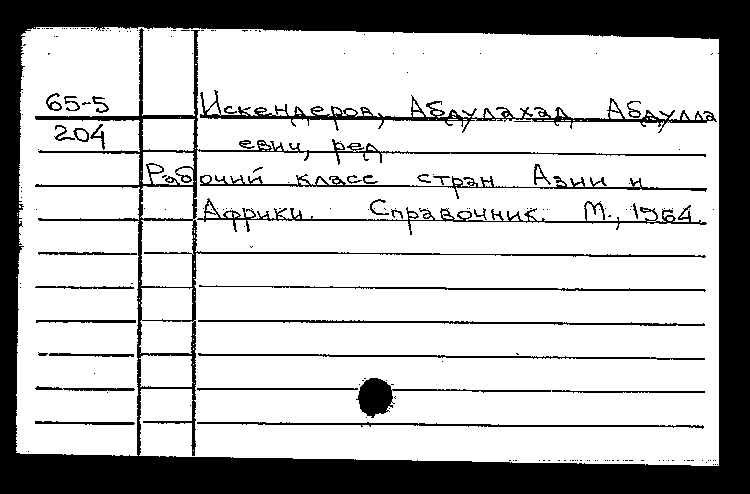 65-5 Искендеров, Абдулахад Абдулла
204 евич, ред
Рабочий класс стран Азии и
Африки. Справочник. М., 1964.